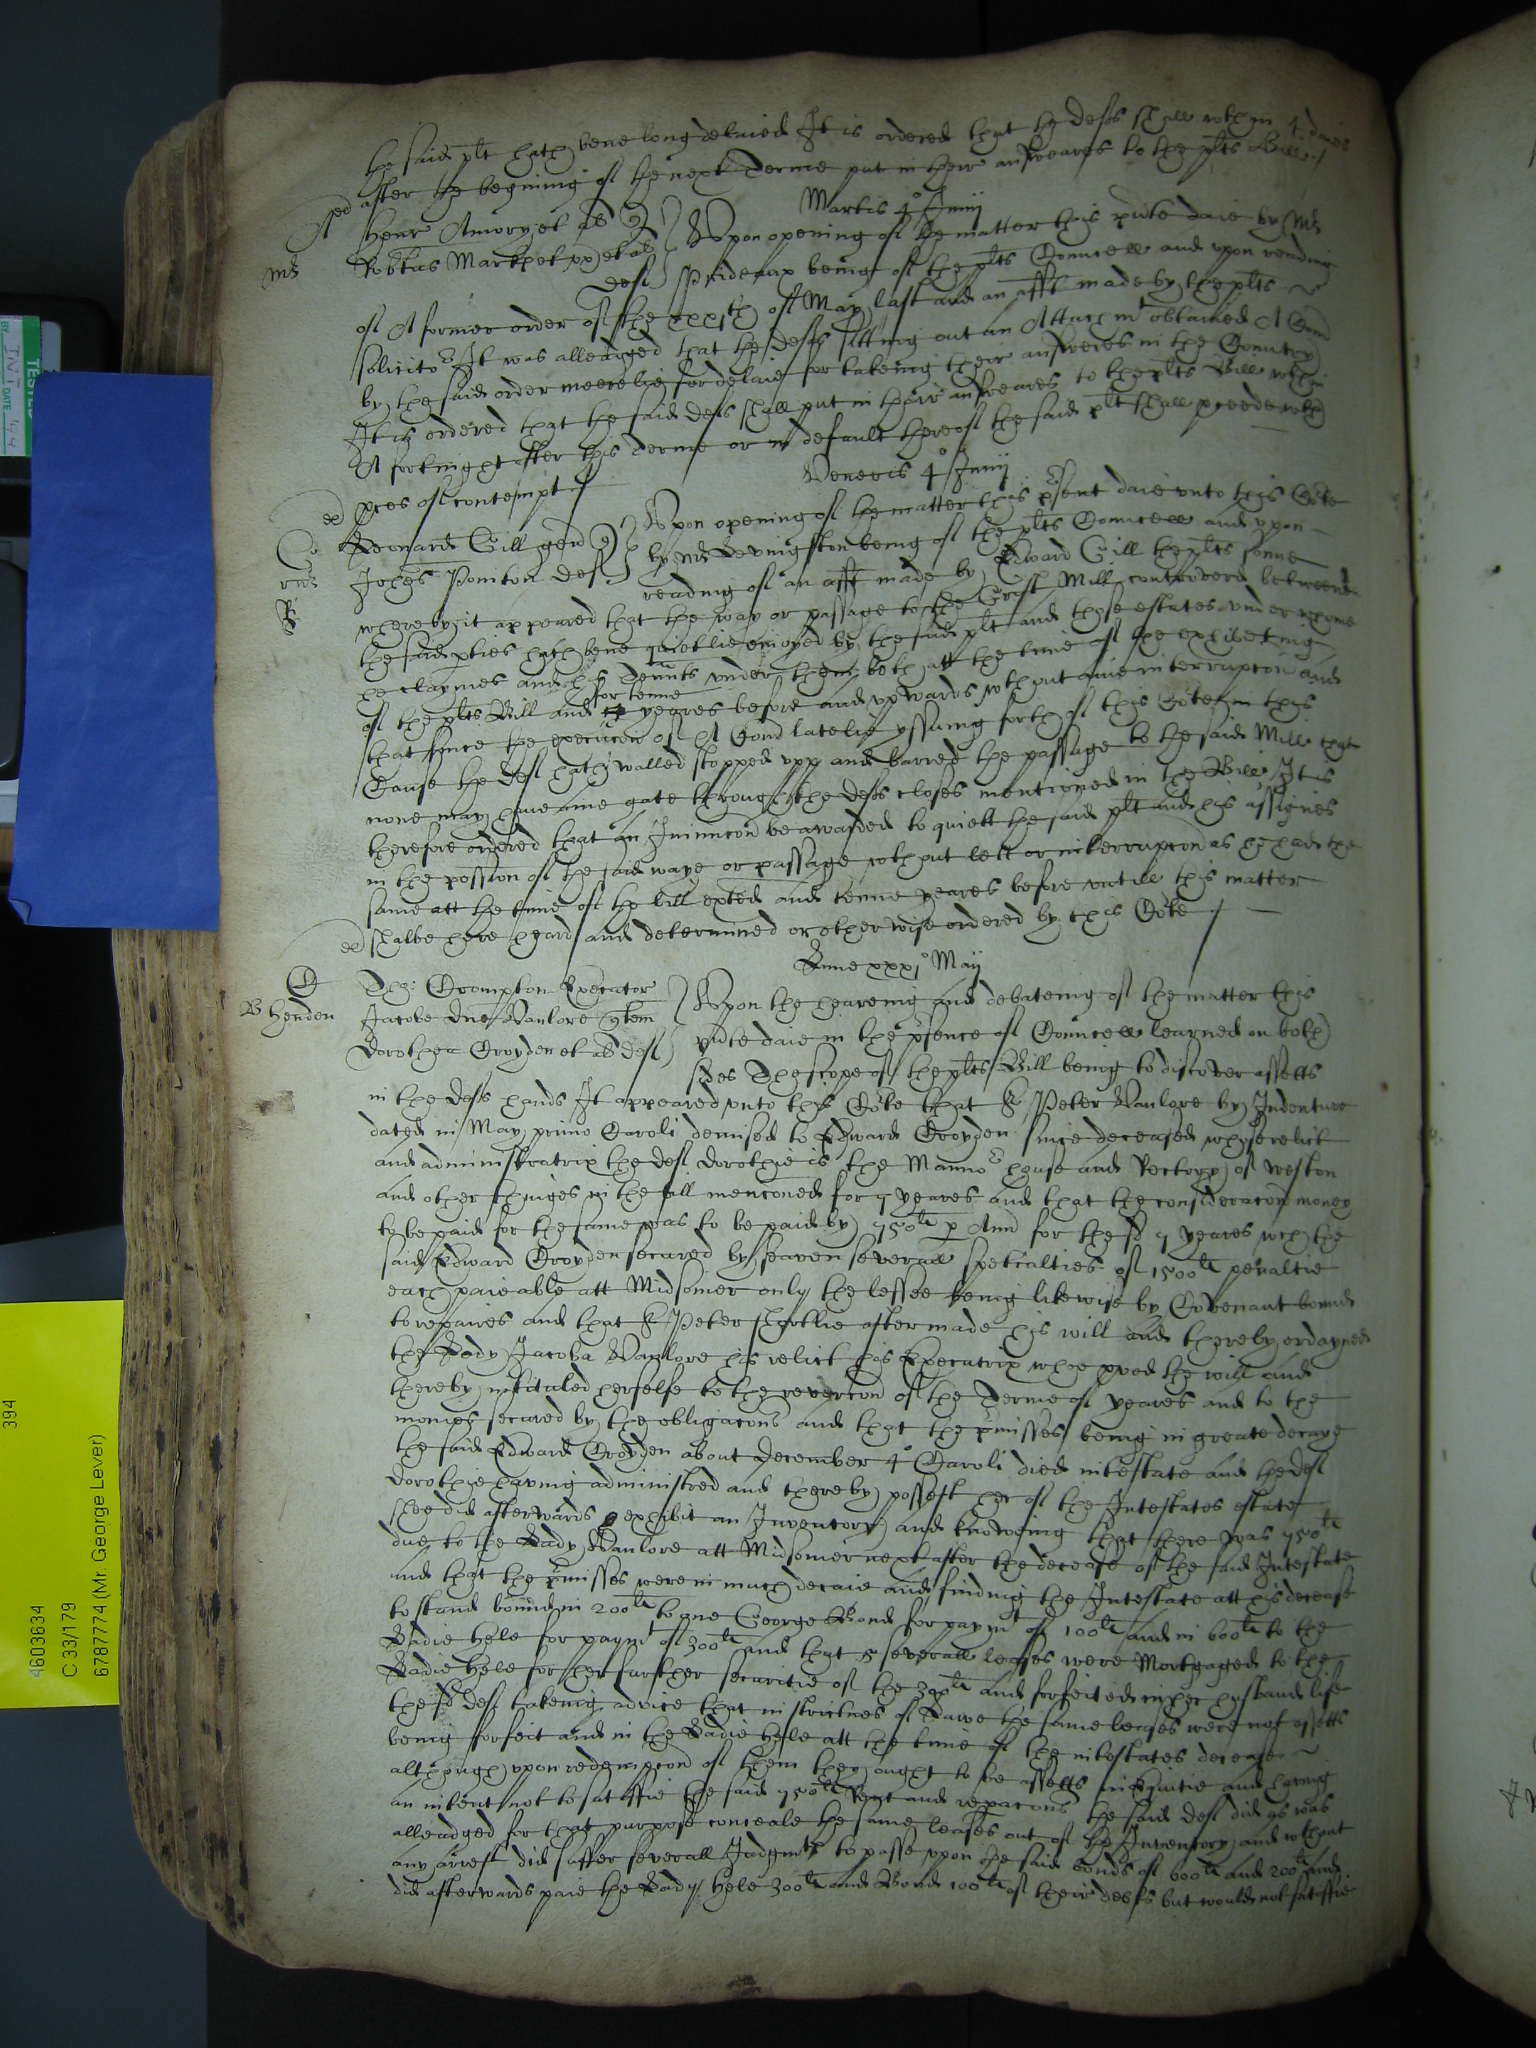 the said plt hath bene long delaied It is ordered that the defts shall wthin 4 daies
after the begining of the next Terme put in their answeares to the plts Bill
Martis 4o Junij
Henr Amory et al
Robtus Markpet ux et al
deft
Upon opening of the matter this pnte daie by Mr
Prideaux being of the plts Councell and upon reading
of A former order of the xxxith of May last and an afft made by the plts
solicitor It was alleadged that the defts sitting out an Attachmt obtained A Comd
by the said order meerelie for delaie for takeing their answeres in the Countrey
It is ordered that the said defts shall put in their answeares to the plts Bill wthin
A fortnight after this terme or in default thereof the said plt shall pceede wth
pces of contempt
Veneris 4o Junij
Leonard Gill gen
Johes Poniton deft
Upon opening of the matter this psent daie unto this Cote
by Mr Levingston being of the plts Councell and upon
reading of an afft made by Edward Gill the plts sonne
whereby it appeared that the way or passage to the Grist Mill controverd betweene
the said pties hath bene quietlie enioyed by the said plt and those estates under whome
he claymes and his tennts under them both att the time of the exhibiting
of the plts Bill and for tenne yeares before and upwards wthout anie interrupcon and
that since the execucon of A Comd latelie yssuing forth of this Cote in this
Cause the deft hath walled stopped upp and barred the passage to the said Mill that
none may have anie gate through the defts closes mentioned in the Bill It is
therefore ordered that an Iniunccon be awarded to quiett the said plt and his assignes
in the possion of the said waye or passage wthout lett or interrupcon as he had the
same att the time of the bill exted and tenne yeares before untill this matter
shalbe here heard and determined or otherwise ordered by this Cote
Lune xxxio May
B Henden
Tho: Crompton Executor
Jacobe dne Vanlore
Dorothea Croyden et al deft
Upon the heareing and debateing of the matter this
pnte daie in the psence of Councell learned on both
sides The scope of the plts Bill being to discover assetts
in the defts hands It appeared unto this Cote that Sr Peter Vanlore by Indenture
dated in May primo Caroli demised to Edward Croyden since deceased whose relict
and administratrix the deft Dorothie is the Mannor house and Rectory of Weston
and other things in the bill menconed for 7 yeares and that the consideracon money
to be paid for the same was to be paid by 750li p Ann for the sd 7 yeares wch the
said Edward Croyden secured by seaven severall specialties of 1500li penaltie
each paieable att Midsomer only the lessee being likewise by Covenant bound
to repaires and that Sr Peter shortlie after made his will and thereby ordayned
the Lady Jacoba Vanlore his relict his Executrix whoe pved the will and
thereby intituled herselfe to the revercon of the Terme of yeares and to the
monies secured by the obligacons and that the pmisses being in greate decaye
the said Edward Croyden about December 4o Caroli died intestate and the deft
Dorothie having administred and thereby possest her of the Intestates estate
shee did afterwards exhibit an Inventory and knowing that there was 750li
due to the Lady Vanlore att Midsomer next after the decease of the said Intestate
and that the pmisses were in much decaie and finding the Intestate att his decease
to stand bound in 200li to one George Bond for paymt of 100li and in 600li to the
Ladie Hele for paymt of 300li and that 5 severall leases were Mortgaged to the
Ladie Hele for her further securitie of the 300li and forfeited in her husbands life
the sd deft takeing advice that in strictnes of Lawe the same leases were not assetts
being forfeit and in the Ladie Hele att the time of the intestates decease
although upon redempcon of them they ought to be assetts in Equitie and having
an intent not to satisfie the said 750li Rent and repacons the said deft did as was
alleadged for that purpose conceale the same leases out of the Inventory and wthout
any arrest did suffer severall Judgmts to passe upon the said bonds of 600li and 200li and
did afterwards paie the Lady Hele 300li and Bond 100li of their debts but would not satisfie
394
4603634
C 33/179
6787774 (Mr. George Lever)